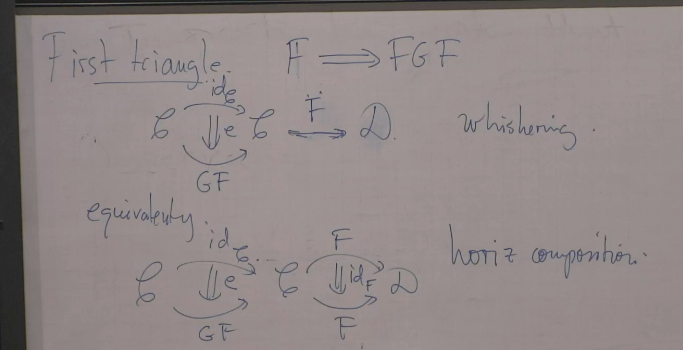 First triangle. F ⟹ FGF
id_𝒞
𝒞 ⇓e 𝒞 F⟶ 𝒟. whiskering.
GF
equivalently.
id_𝒞 F
𝒞 ⇓e 𝒞 ⇓id_F 𝒟 horiz composition.
GF F